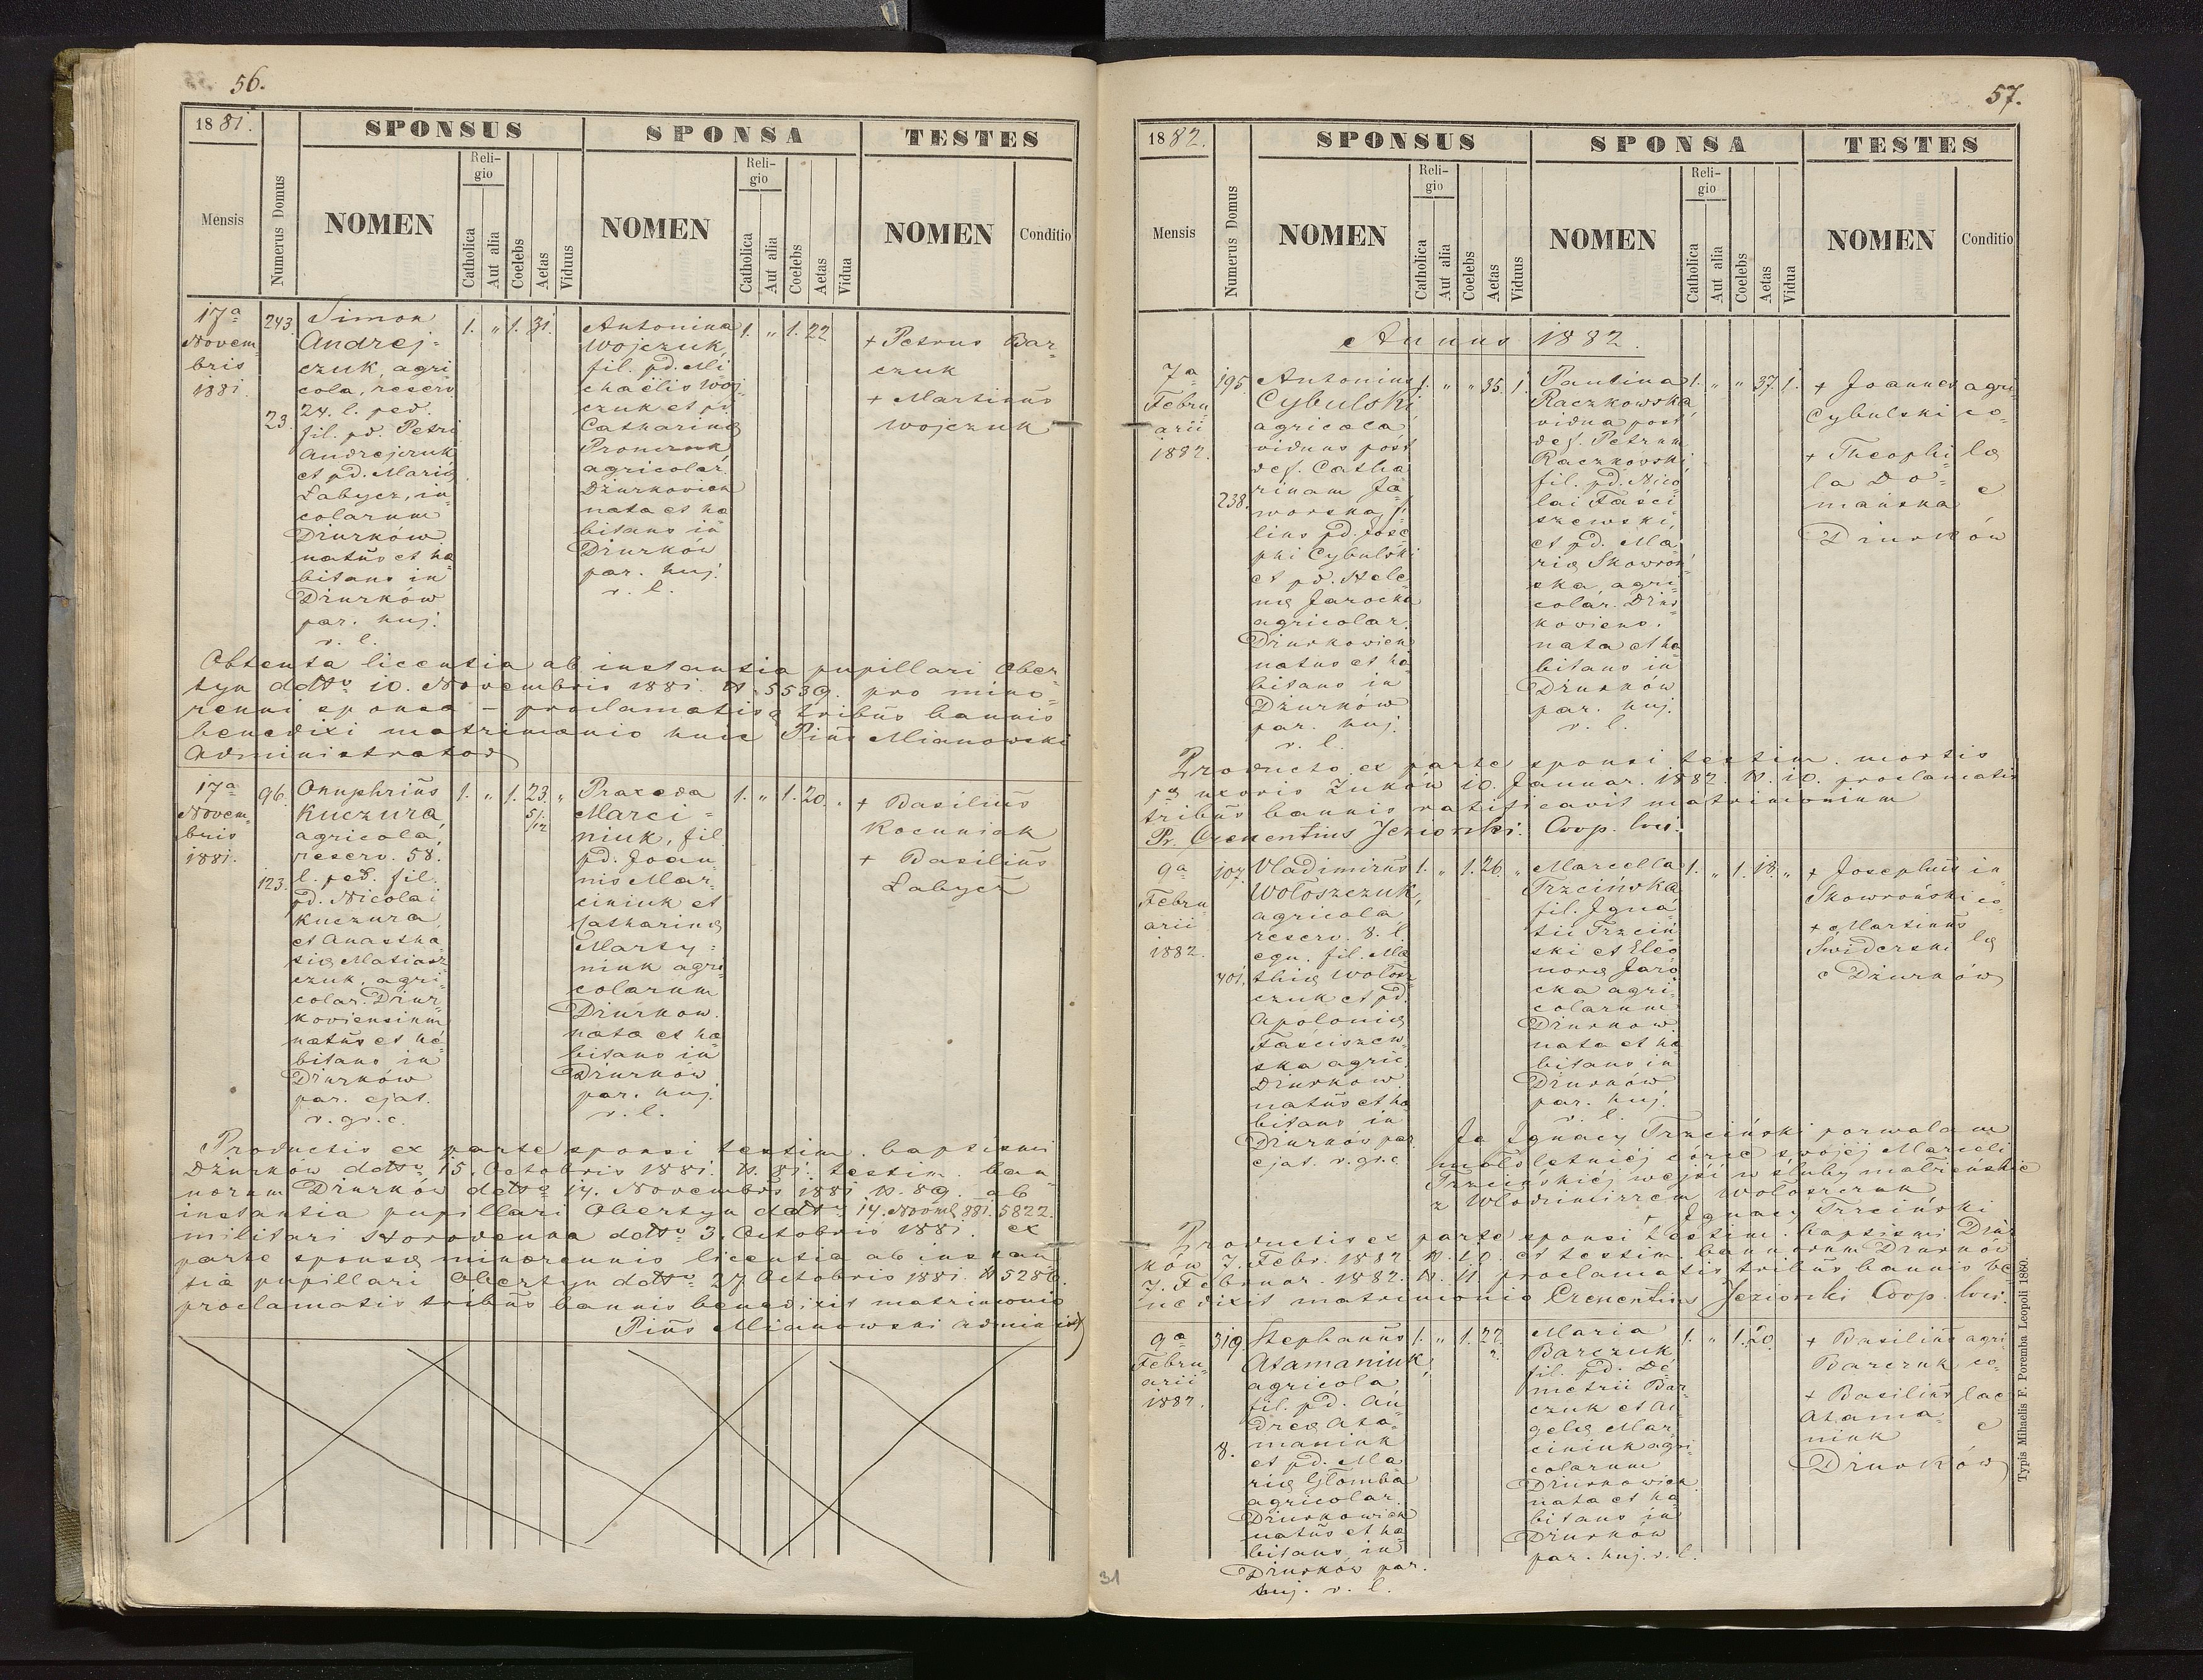 56.
1881.
SPONSUS
SPONSA
TESTES
Mensis
Numerus Domus
NOMEN
Religio
Catholica
Aut alia
Coelebs
Aetas
Viduus
NOMEN
Religio
Catholica
Aut alia
Coelebs
Aetas
Vidua
NOMEN
Conditio
17a
Novem=
bris
1881.
243.
23.
Simon
Andrej=
czuk, agri
cola, reserv
24. l. ped.
fil. pd. Petri
Andrejczuk
et pd. Mariæ
Łabycz, in=
colarum
Dżurków
natus et ha
bitans in
Dżurków
par. huj.
r. l.
1. " 1. 31.
Antonina
Wojczuk,
fil. pd. Mi
chaëlis Woj
czuk et pd
Catharinæ
Pronczuk
agricolar.
Dżurkovien
nata et ha
bitans in
Dżurków
par. huj.
r. l.
1. " 1. 22
+ Petrus Bar=
czuk
+ Martinus
Wojczuk
Obtenta licentia ab instantia pupillari Ober=
tyn ddtto 10. Novembris 1881. N. 5539. pro mino=
renni sponsa – proclamatis tribus bannis
benedixi matrimonio hunc Pius Mianowski
Administrator
17a
Novem=
bris
1881.
96.
123.
Onuphrius
Kuczura
agricola,
reserv. 58.
l. ped. fil.
pd. Nicolai
Kuczura
et Anastha
siæ Matiasz
czuk, agri=
colar. Dżur=
koviensium
natus et ha
bitans in
Dżurków
par. ejat.
r. gr. c.
1. " 1. 23. "
5/12
Praxeda
Marci=
niuk, fil
pd. Joan
nis Mar=
ciniuk et
Catharinæ
Marty=
niuk agri=
colarum
Dżurkow.
nata et ha
bitans in
Dżurków
par. huj.
r. l.
1. " 1. 20. "
+ Basilius
Kocuniak
+ Basilius
Łabycz
Productis ex parte sponsi testim. baptismi
Dżurków ddtto 15. Octobris 1881. N. 81. testim. ban=
norum Dżurków ddtto 14. Novembris 1881 N. 89. ab
instantia pupillari Obertyn ddtto 14. Novmb 881. 5822.
militari Horodenka ddtto 3. Octobris 1881. ex
parte sponsæ minorennis licentia ab instan
tia pupillari Obertyn ddtto 27 Octobris 1881. N 5286.
proclamatis tribus bannis benedixit matrimonio
Pius Mianowski administ
57.
1882.
SPONSUS
SPONSA
TESTES
Mensis
Numerus Domus
NOMEN
Religio
Catholica
Aut alia
Coelebs
Aetas
Viduus
NOMEN
Religio
Catholica
Aut alia
Coelebs
Aetas
Vidua
NOMEN
Conditio
Annus 1882.
7a
Febru
arii
1882.
195.
238.
Antoninus
Cybulski,
agricola
viduus post
def. Catha
rinam Ja=
worska, fi=
lius pd. Jose
phi Cybulski
et pd. Hele=
næ Jarocka
agricolar.
Dżurkovien
natus et ha
bitans in
Dżurków
par. huj.
r. l.
1. " " 35. 1.
Paulina
Raczkowska
vidua post
def. Petrum
Raczkowski,
fil. pd. Nico
lai Faści
szewski,
et pd. Ma
riæ Skowroń
ska, agri=
colar. Dżur=
koviens.
nata et ha
bitans in
Dżurków
par. huj.
r. l.
1. " " 37. 1.
+ Joannes agri
Cybulski co=
+ Theophi= læ
la Do=
mańska e
Dżurków
Producto ex parte sponsi testim. mortis
1æ uxoris Żuków 10. Januar. 1882. N. 10. proclamatis
tribus bannis ratificavit matrimonium
Pr. Crementius Jezioński. Coop. loci.
9a
Febru=
arii
1882.
107.
401.
Vladimirus
Wołoszczuk,
agricola
reserv. 8. l.
equ. fil. Ma
thiæ Wołosz
czuk et pd.
Apoloniæ
Faściszew=
ska agric.
Dżurkow.
natus et ha
bitans in
Dżurków par
ejat. r. gr. c
1. " 1. 26. "
Marcella
Trzcińska
fil. Igna
tii Trzciń
ski et Eleo
noræ Jaro
cka agri=
colarum
Dżurkow.
nata et ha
bitans in
Dżurków
par. huj.
r. l.
1. " 1. 18. "
+ Josephus in
Skowroński co=
+ Martinus
Świderski læ
e Dżurków
Ja Ignacy Trzciński pozwalam
małoletniéj córce swojéj Marceli
Trzcińskiéj wejść w śluby małżeńskie
z Włodzimirzem Wołoszczuk
+ Ignacy Trzciński
Productis ex parte sponsi testim. baptismi Dżur
ków 7. Febr. 1882 N. 10. et testim. bannorum Dżurków
7. Februar. 1882. N. 11. proclamatis tribus bannis be
nedixit matrimonio Crementius Jezioński Coop. loci.
9a
Febru=
arii
1882.
319.
8.
Stephanus
Atamaniuk,
agricola
fil. pd. An
dreæ Ata=
maniuk
et pd. Ma
riæ Głomba
agricolar.
Dżurkowien
natus et ha
bitans in
Dżurków par.
huj. r. l.
1. " 1. 22.
Maria
Barczuk
fil. pd. De=
metrii Bar=
czuk et An
gelæ Mar=
ciniuk agri=
colarum
Dżurkowien.
nata et ha
bitans in
Dżurków
par. huj. r. l.
1. " 1. 20.
+ Basilius agri
Barczuk co=
+ Basilius lae
Atama=
niuk e
Dżurków
31
Typis Mihaelis F. Poremba Leopoli 1860.